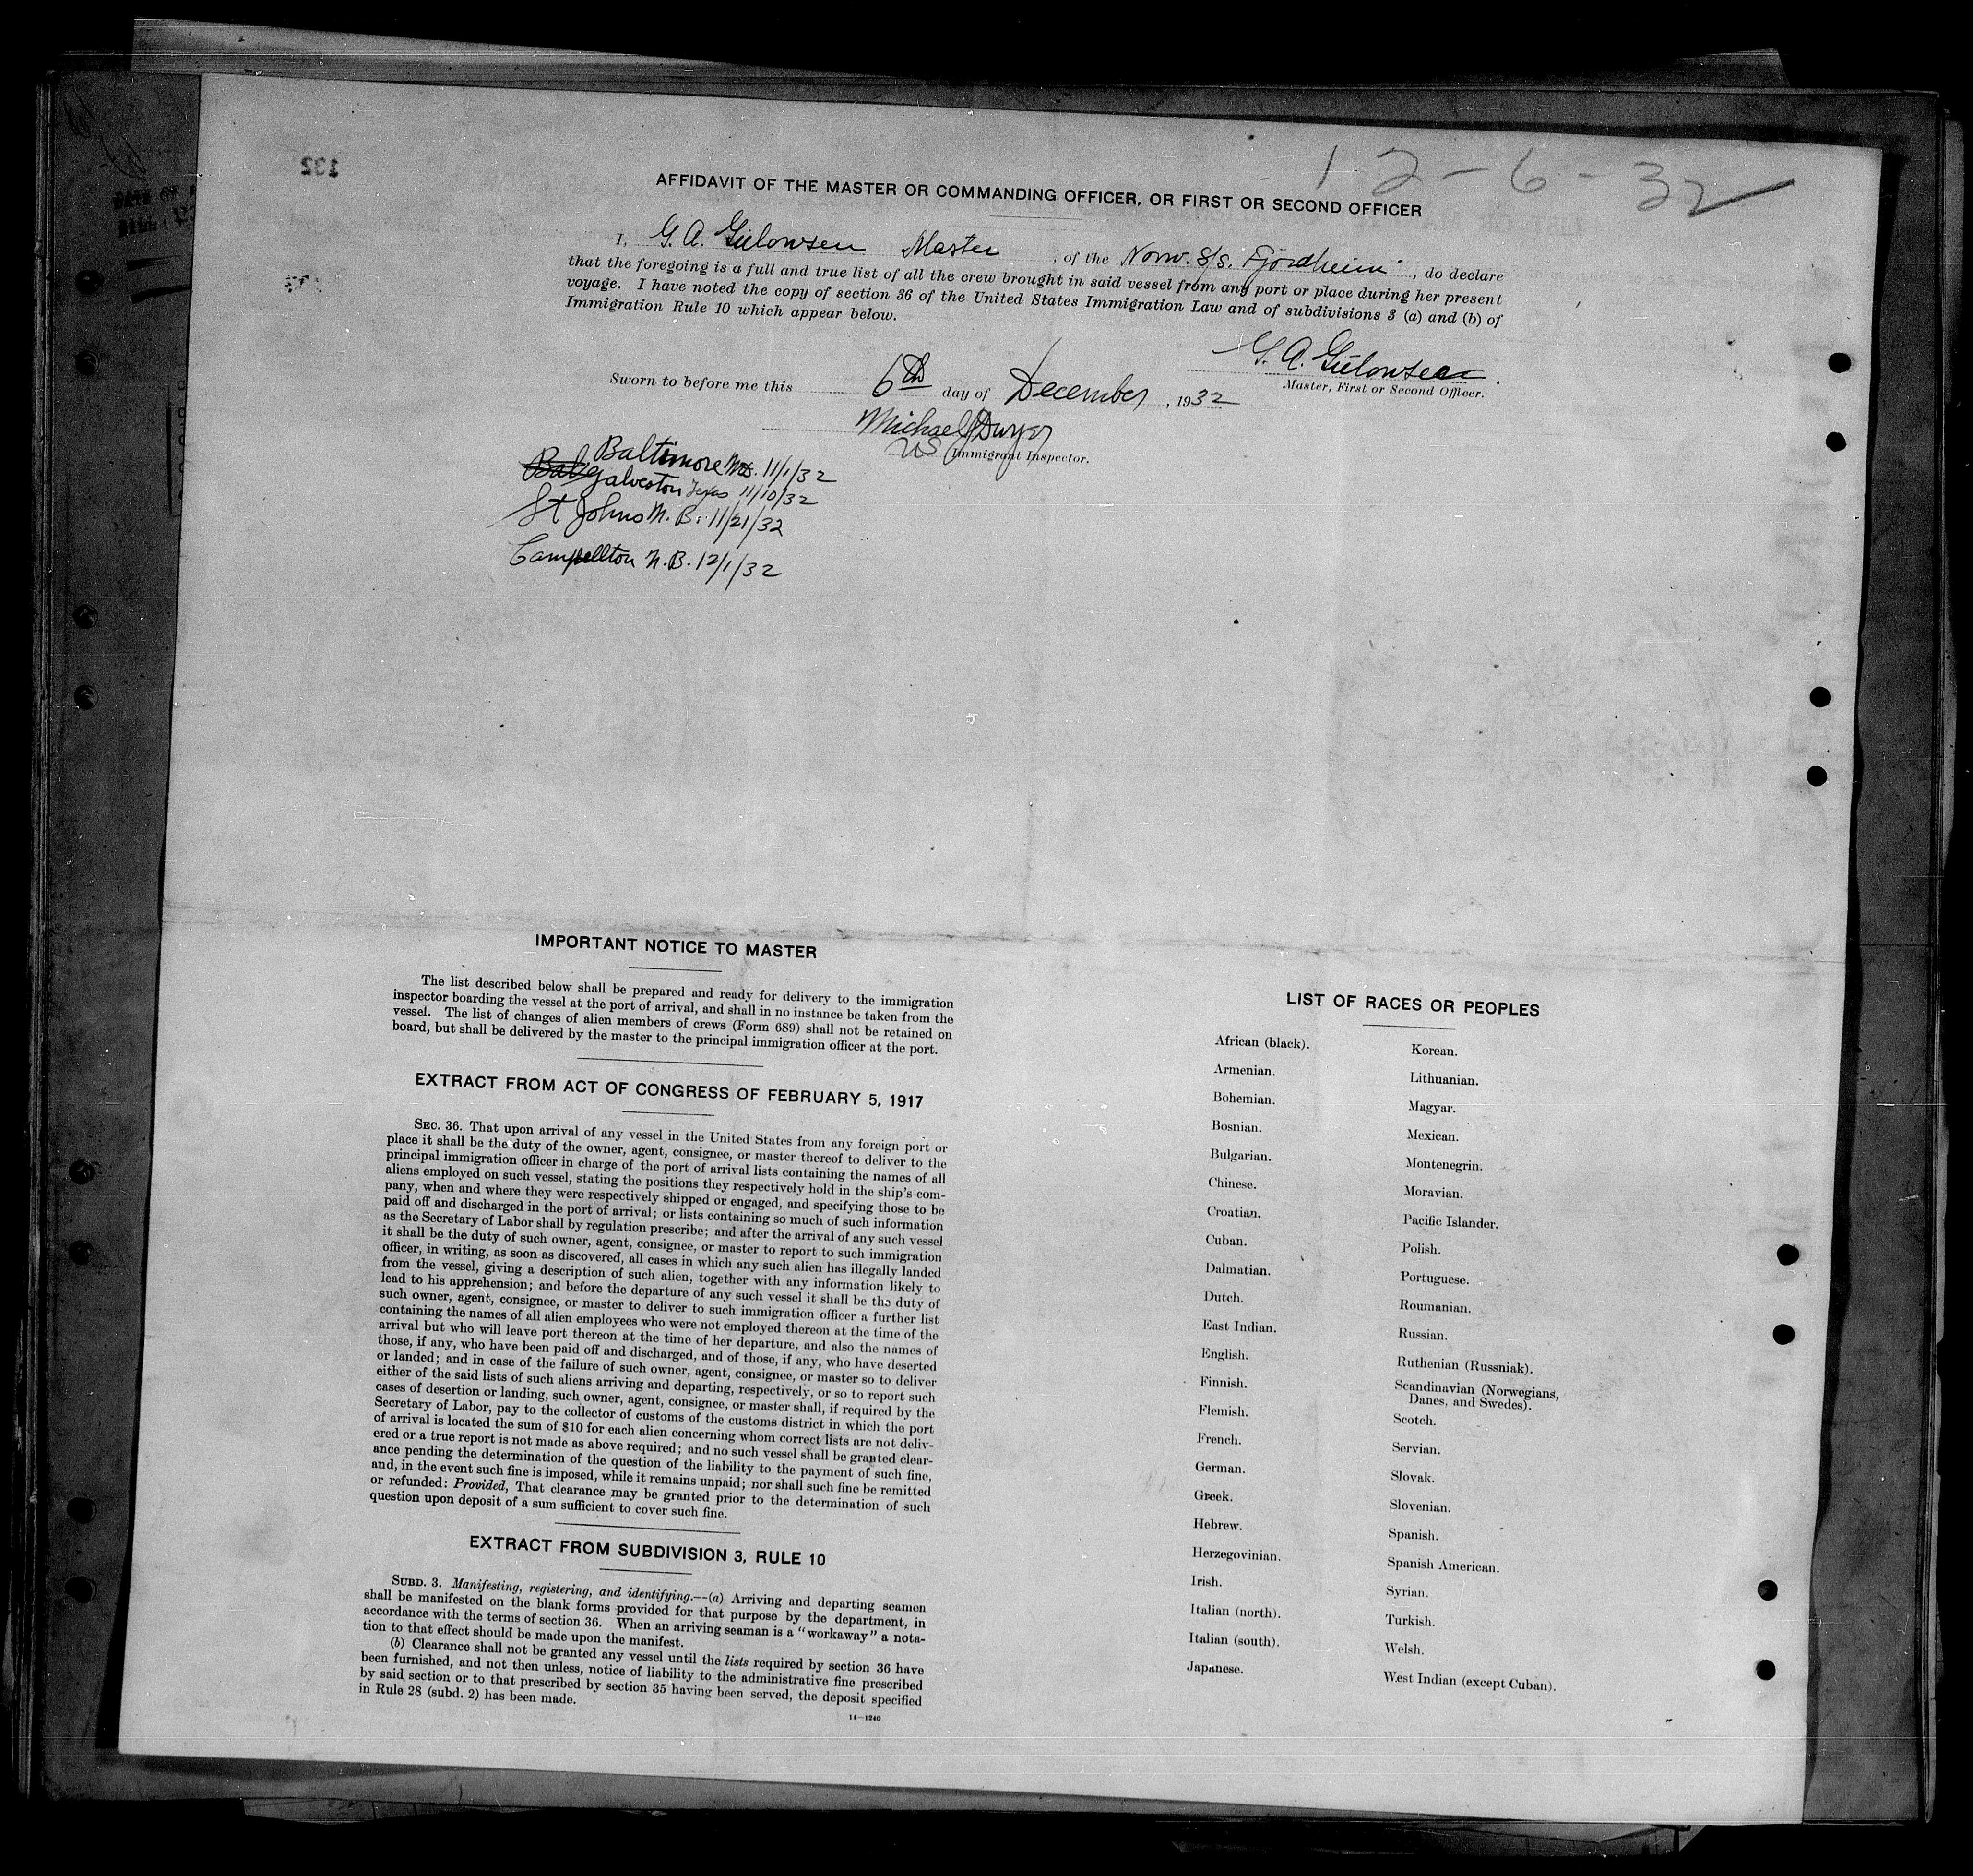 132
12-6-32
AFFIDAVIT OF THE MASTER OR COMMANDING OFFICER, OR FIRST OR SECOND OFFICER
I, G. A. Gülowsen Master, of the Norw. S/s. Fjordheim, do declare
that the foregoing is a full and true list of all the crew brought in said vessel from any port or place during her present
voyage. I have noted the copy of section 36 of the United States Immigration Law and of subdivisions 3 (a) and (b) of
Immigration Rule 10 which appear below.
G. A. Gülowsen
Master, First or Second Officer.
Sworn to before me this 6th day of December, 1932
Michael J Dwyer
US Immigrant Inspector.
Baltimore Md. 11/1/32
Galveston Texas 11/10/32
St Johns N. B. 11/21/32
Campellton N. B. 12/1/32
IMPORTANT NOTICE TO MASTER
The list described below shall be prepared and ready for delivery to the immigration
inspector boarding the vessel at the port of arrival, and shall in no instance be taken from the
vessel. The list of changes of alien members of crews (Form 689) shall not be retained on
board, but shall be delivered by the master to the principal immigration officer at the port.
EXTRACT FROM ACT OF CONGRESS OF FEBRUARY 5, 1917
SEC. 36. That upon arrival of any vessel in the United States from any foreign port or
place it shall be the duty of the owner, agent, consignee, or master thereof to deliver to the
principal immigration officer in charge of the port of arrival lists containing the names of all
aliens employed on such vessel, stating the positions they respectively hold in the ship's com-
pany, when and where they were respectively shipped or engaged, and specifying those to be
paid off and discharged in the port of arrival; or lists containing so much of such information
as the Secretary of Labor shall by regulation prescribe; and after the arrival of any such vessel
it shall be the duty of such owner, agent, consignee, or master to report to such immigration
officer, in writing, as soon as discovered, all cases in which any such alien has illegally landed
from the vessel, giving a description of such alien, together with any information likely to
lead to his apprehension; and before the departure of any such vessel it shall be the duty of
such owner, agent, consignee, or master to deliver to such immigration officer a further list
containing the names of all alien employees who were not employed thereon at the time of the
arrival but who will leave port thereon at the time of her departure, and also the names of
those, if any, who have been paid off and discharged, and of those, if any, who have deserted
or landed; and in case of the failure of such owner, agent, consignee, or master so to deliver
either of the said lists of such aliens arriving and departing, respectively, or so to report such
cases of desertion or landing, such owner, agent, consignee, or master shall, if required by the
Secretary of Labor, pay to the collector of customs of the customs district in which the port
of arrival is located the sum of $10 for each alien concerning whom correct lists are not deliv-
ered or a true report is not made as above required; and no such vessel shall be granted clear-
ance pending the determination of the question of the liability to the payment of such fine,
and, in the event such fine is imposed, while it remains unpaid; nor shall such fine be remitted
or refunded: Provided, That clearance may be granted prior to the determination of such
question upon deposit of a sum sufficient to cover such fine.
EXTRACT FROM SUBDIVISION 3, RULE 10
SUBD. 3. Manifesting, registering, and identifying.—(a) Arriving and departing seamen
shall be manifested on the blank forms provided for that purpose by the department, in
accordance with the terms of section 36. When an arriving seaman is a "workaway" a nota-
tion to that effect should be made upon the manifest.
(b) Clearance shall not be granted any vessel until the lists required by section 36 have
been furnished, and not then unless, notice of liability to the administrative fine prescribed
by said section or to that prescribed by section 35 having been served, the deposit specified
in Rule 28 (subd. 2) has been made.
14—1240
LIST OF RACES OR PEOPLES
African (black).
Armenian.
Bohemian.
Bosnian.
Bulgarian.
Chinese.
Croatian.
Cuban.
Dalmatian.
Dutch.
East Indian.
English.
Finnish.
Flemish.
French.
German.
Greek.
Hebrew.
Herzegovinian.
Irish.
Italian (north).
Italian (south).
Japanese.
Korean.
Lithuanian.
Magyar.
Mexican.
Montenegrin.
Moravian.
Pacific Islander.
Polish.
Portuguese.
Roumanian.
Russian.
Ruthenian (Russniak).
Scandinavian (Norwegians,
Danes, and Swedes).
Scotch.
Servian.
Slovak.
Slovenian.
Spanish.
Spanish American.
Syrian.
Turkish.
Welsh.
West Indian (except Cuban).